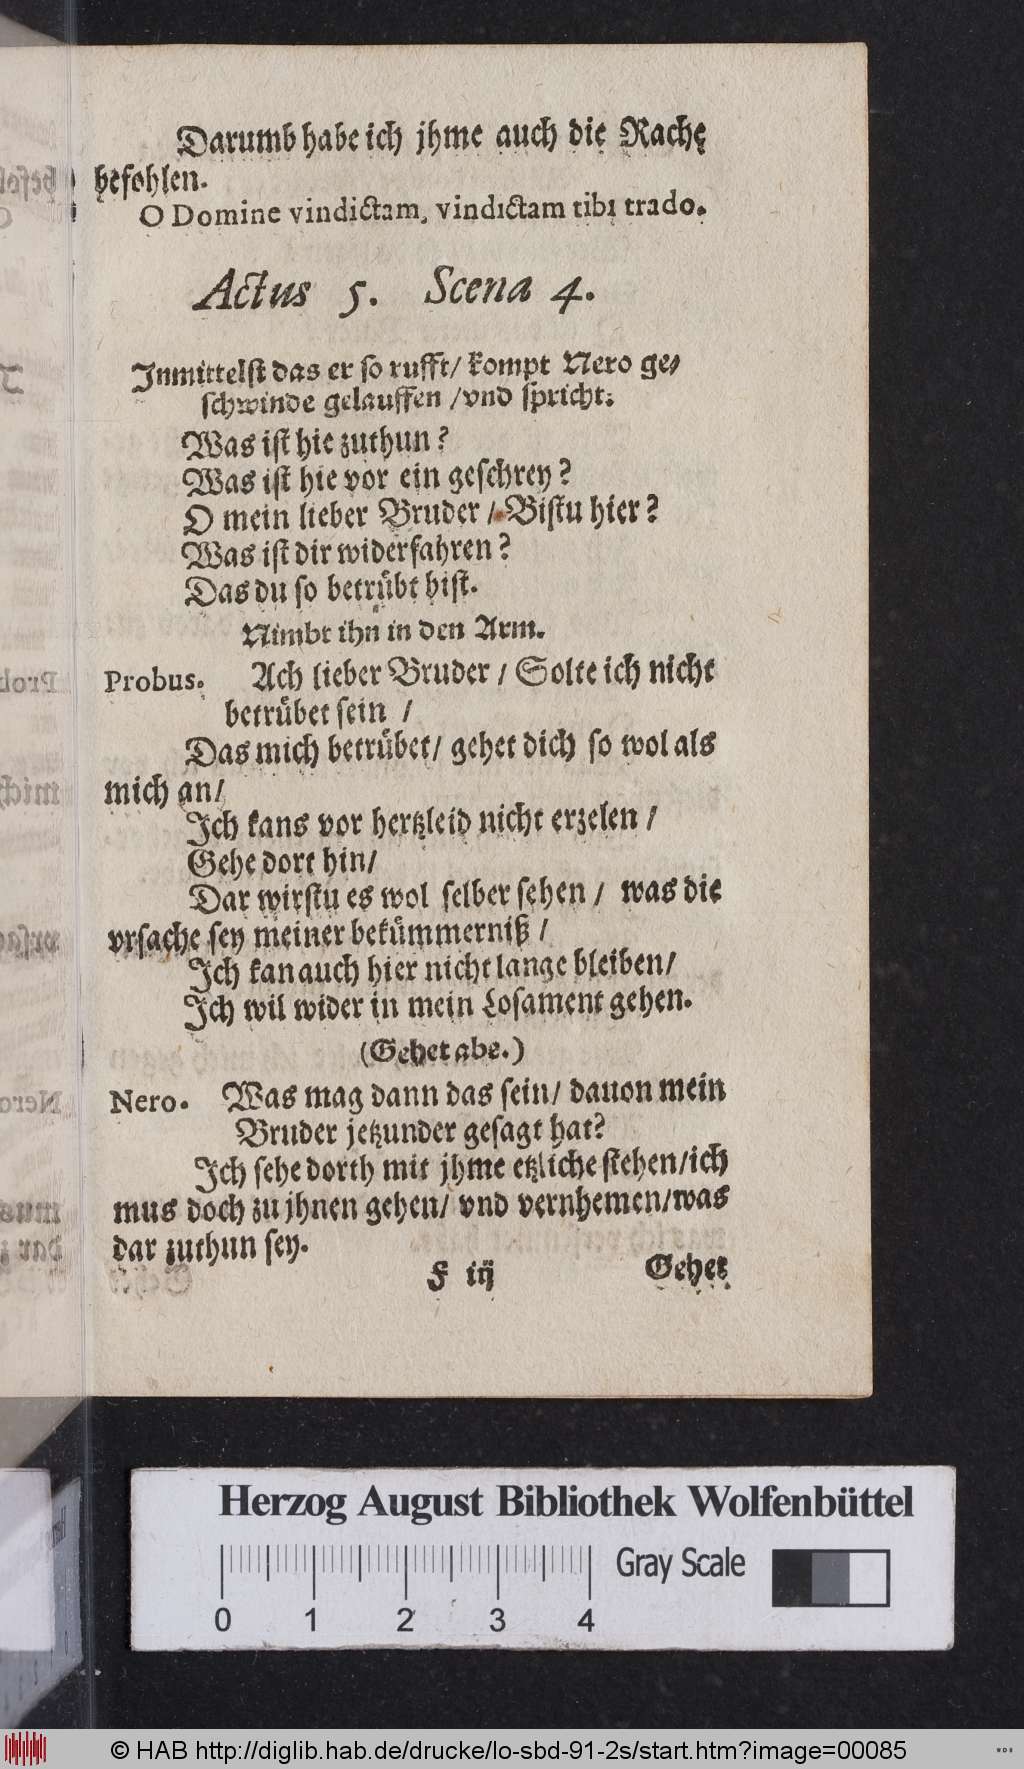 Darumb habe ich jhme auch die Rache
befohlen.
O Domine vindictam, vindictam tibi trado.
Actus 5. Scena 4.
Inmittelst das er so rufft/ kompt Nero ge-
schwinde gelauffen /vnd spricht:
Was ist hie zuthun?
Was ist hie vor ein geschrey?
O mein lieber Bruder / Bistu hier?
Was ist dir widerfahren?
Das du so betrübt bist.
Nimbt ihn in den Arm.
Probus. Ach lieber Bruder / Solte ich nicht
betrübet sein /
Das mich betrübet/ gehet dich so wol als
mich an/
Ich kans vor hertzleid nicht erzelen /
Gehe dort hin/
Dar wirstu es wol selber sehen / was die
vrsache sey meiner bekümmerniß /
Ich kan auch hier nicht lange bleiben/
Ich wil wider in mein Losament gehen.
(Gehet abe.)
Nero. Was mag dann das sein/ dauon mein
Bruder jetzunder gesagt hat?
Ich sehe dorth mit jhme etzliche stehen/ich
mus doch zu jhnen gehen/ vnd vernhemen/was
dar zuthun sey.
F iij Gehet
Herzog August Bibliothek Wolfenbüttel
Gray Scale
0 1 2 3 4
© HAB http://diglib.hab.de/drucke/lo-sbd-91-2s/start.htm?image=00085